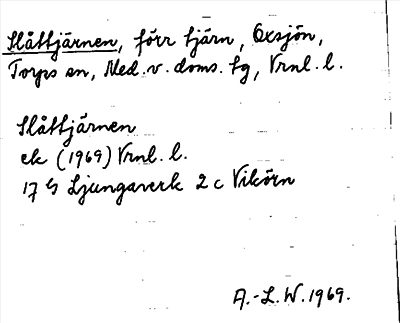 Slåttjärnen, förr tjärn, Oxsjön,
Torps sn, Med. v. doms. tg, Vrnl. l.
Slåttjärnen
ek (1969) Vrnl. l.
17 G Ljungaverk 2 c Vikörn
A.-L. W. 1969.